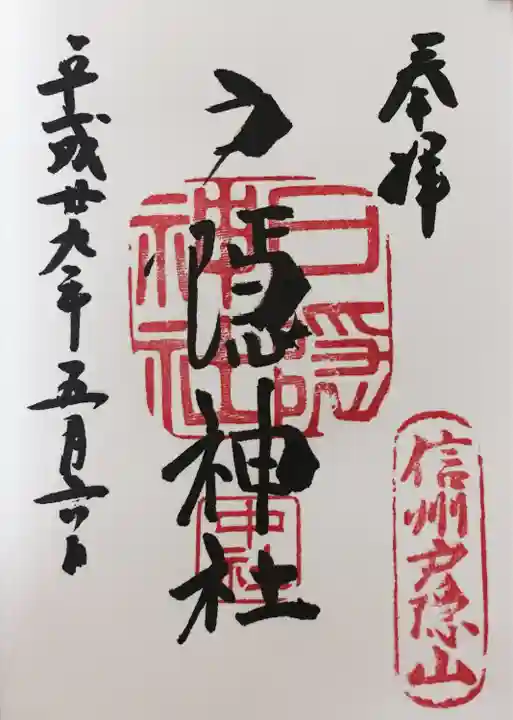 奉拝
信州戸隠山
戸隠神社
戸隠神社
中社
平成廿九年五月六日